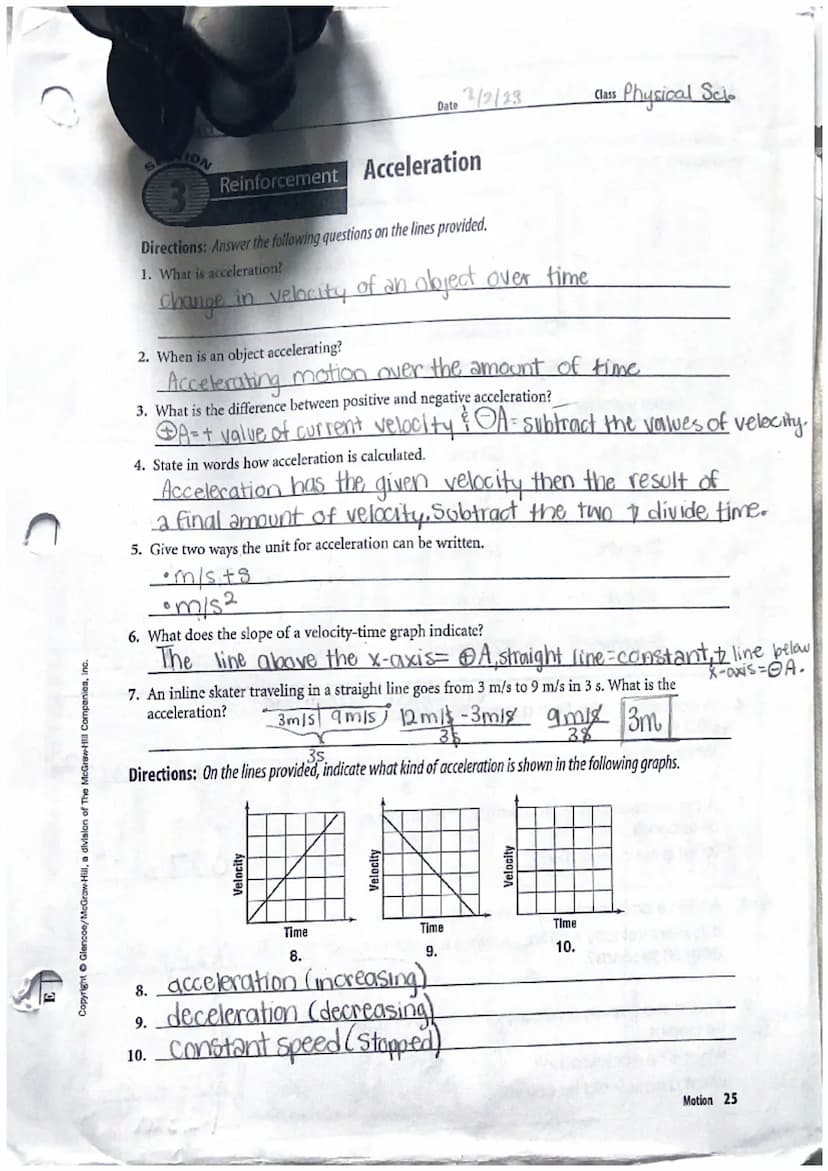 Date 2/2/23 Class Physical Sci.
3 Reinforcement Acceleration
Directions: Answer the following questions on the lines provided.
1. What is acceleration?
Change in velocity of an object over time
2. When is an object accelerating?
Accelerating motion over the amount of time
3. What is the difference between positive and negative acceleration?
⊕A=+ value of current velocity & ⊖A= subtract the values of velocity.
4. State in words how acceleration is calculated.
Acceleration has the given velocity then the result of
a final amount of velocity. Subtract the two & divide time.
5. Give two ways the unit for acceleration can be written.
•m/s,+s
•m/s²
6. What does the slope of a velocity-time graph indicate?
The line above the x-axis= ⊕A, straight line=constant, & line below
x-axis=⊖A.
7. An inline skater traveling in a straight line goes from 3 m/s to 9 m/s in 3 s. What is the
acceleration? 3m/s 9m/s 12m/s-3m/s 9m/s 3m
3s 3s 3s
Directions: On the lines provided, indicate what kind of acceleration is shown in the following graphs.
Velocity Velocity Velocity
Time Time Time
8. 9. 10.
8. acceleration (increasing)
9. deceleration (decreasing)
10. constant speed (stopped)
Copyright © Glencoe/McGraw-Hill, a division of The McGraw-Hill Companies, Inc.
Motion 25